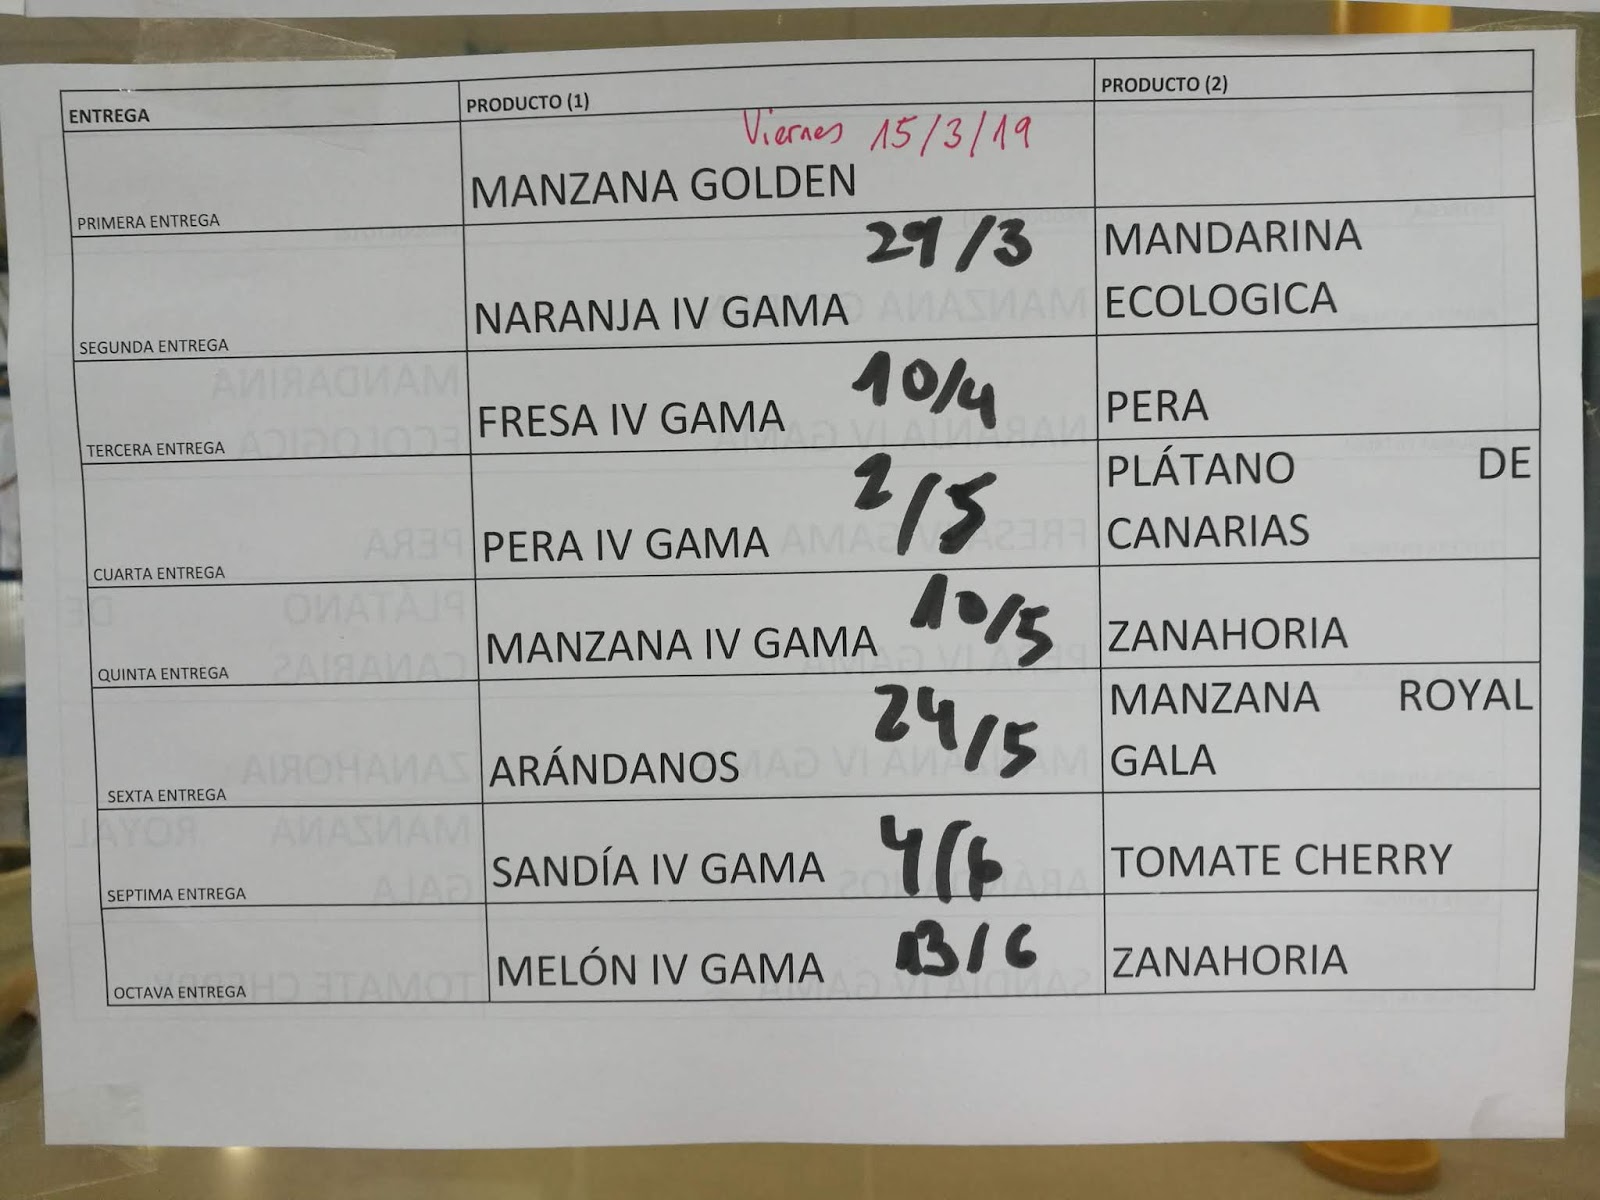 ENTREGA PRODUCTO (1) PRODUCTO (2)
Viernes 15/3/19
PRIMERA ENTREGA MANZANA GOLDEN
29/3
SEGUNDA ENTREGA NARANJA IV GAMA MANDARINA
ECOLOGICA
TERCERA ENTREGA FRESA IV GAMA 10/4 PERA
CUARTA ENTREGA PERA IV GAMA 2/5 PLÁTANO DE
CANARIAS
QUINTA ENTREGA MANZANA IV GAMA 10/5 ZANAHORIA
SEXTA ENTREGA ARÁNDANOS 24/5 MANZANA ROYAL
GALA
SEPTIMA ENTREGA SANDÍA IV GAMA 4/6 TOMATE CHERRY
OCTAVA ENTREGA MELÓN IV GAMA 13/6 ZANAHORIA